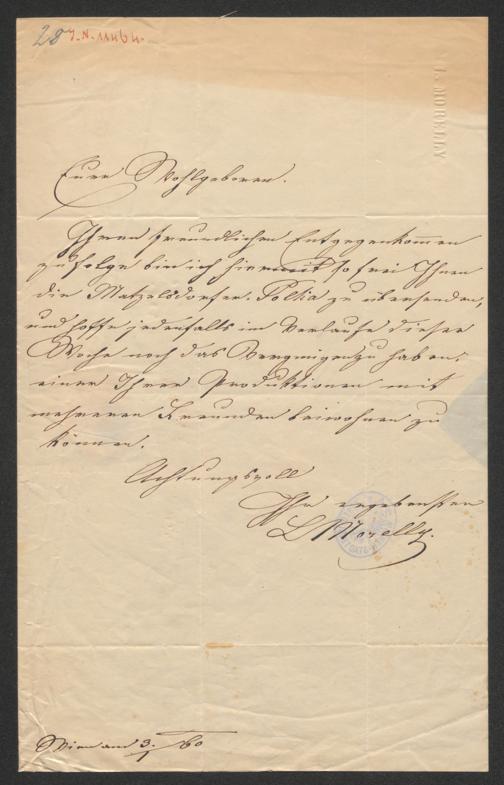 28 J. N. 11464.
L. MORELLY
Eure Wohlgeboren.
Ihrem freundlichen Entgegenkommen
zufolge bin ich hiermit so frei Ihnen
die Matzelsdorfer-Polka zu übersenden,
und hoffe jedenfalls im Verlaufe dieser
Woche noch das Vergnügen zu haben,
einer Ihrer Produktionen mit
mehreren Freunden beiwohnen zu
können.
Achtungsvoll
Ihr ergebenster
L Morelly.
Wien am 3/1 60